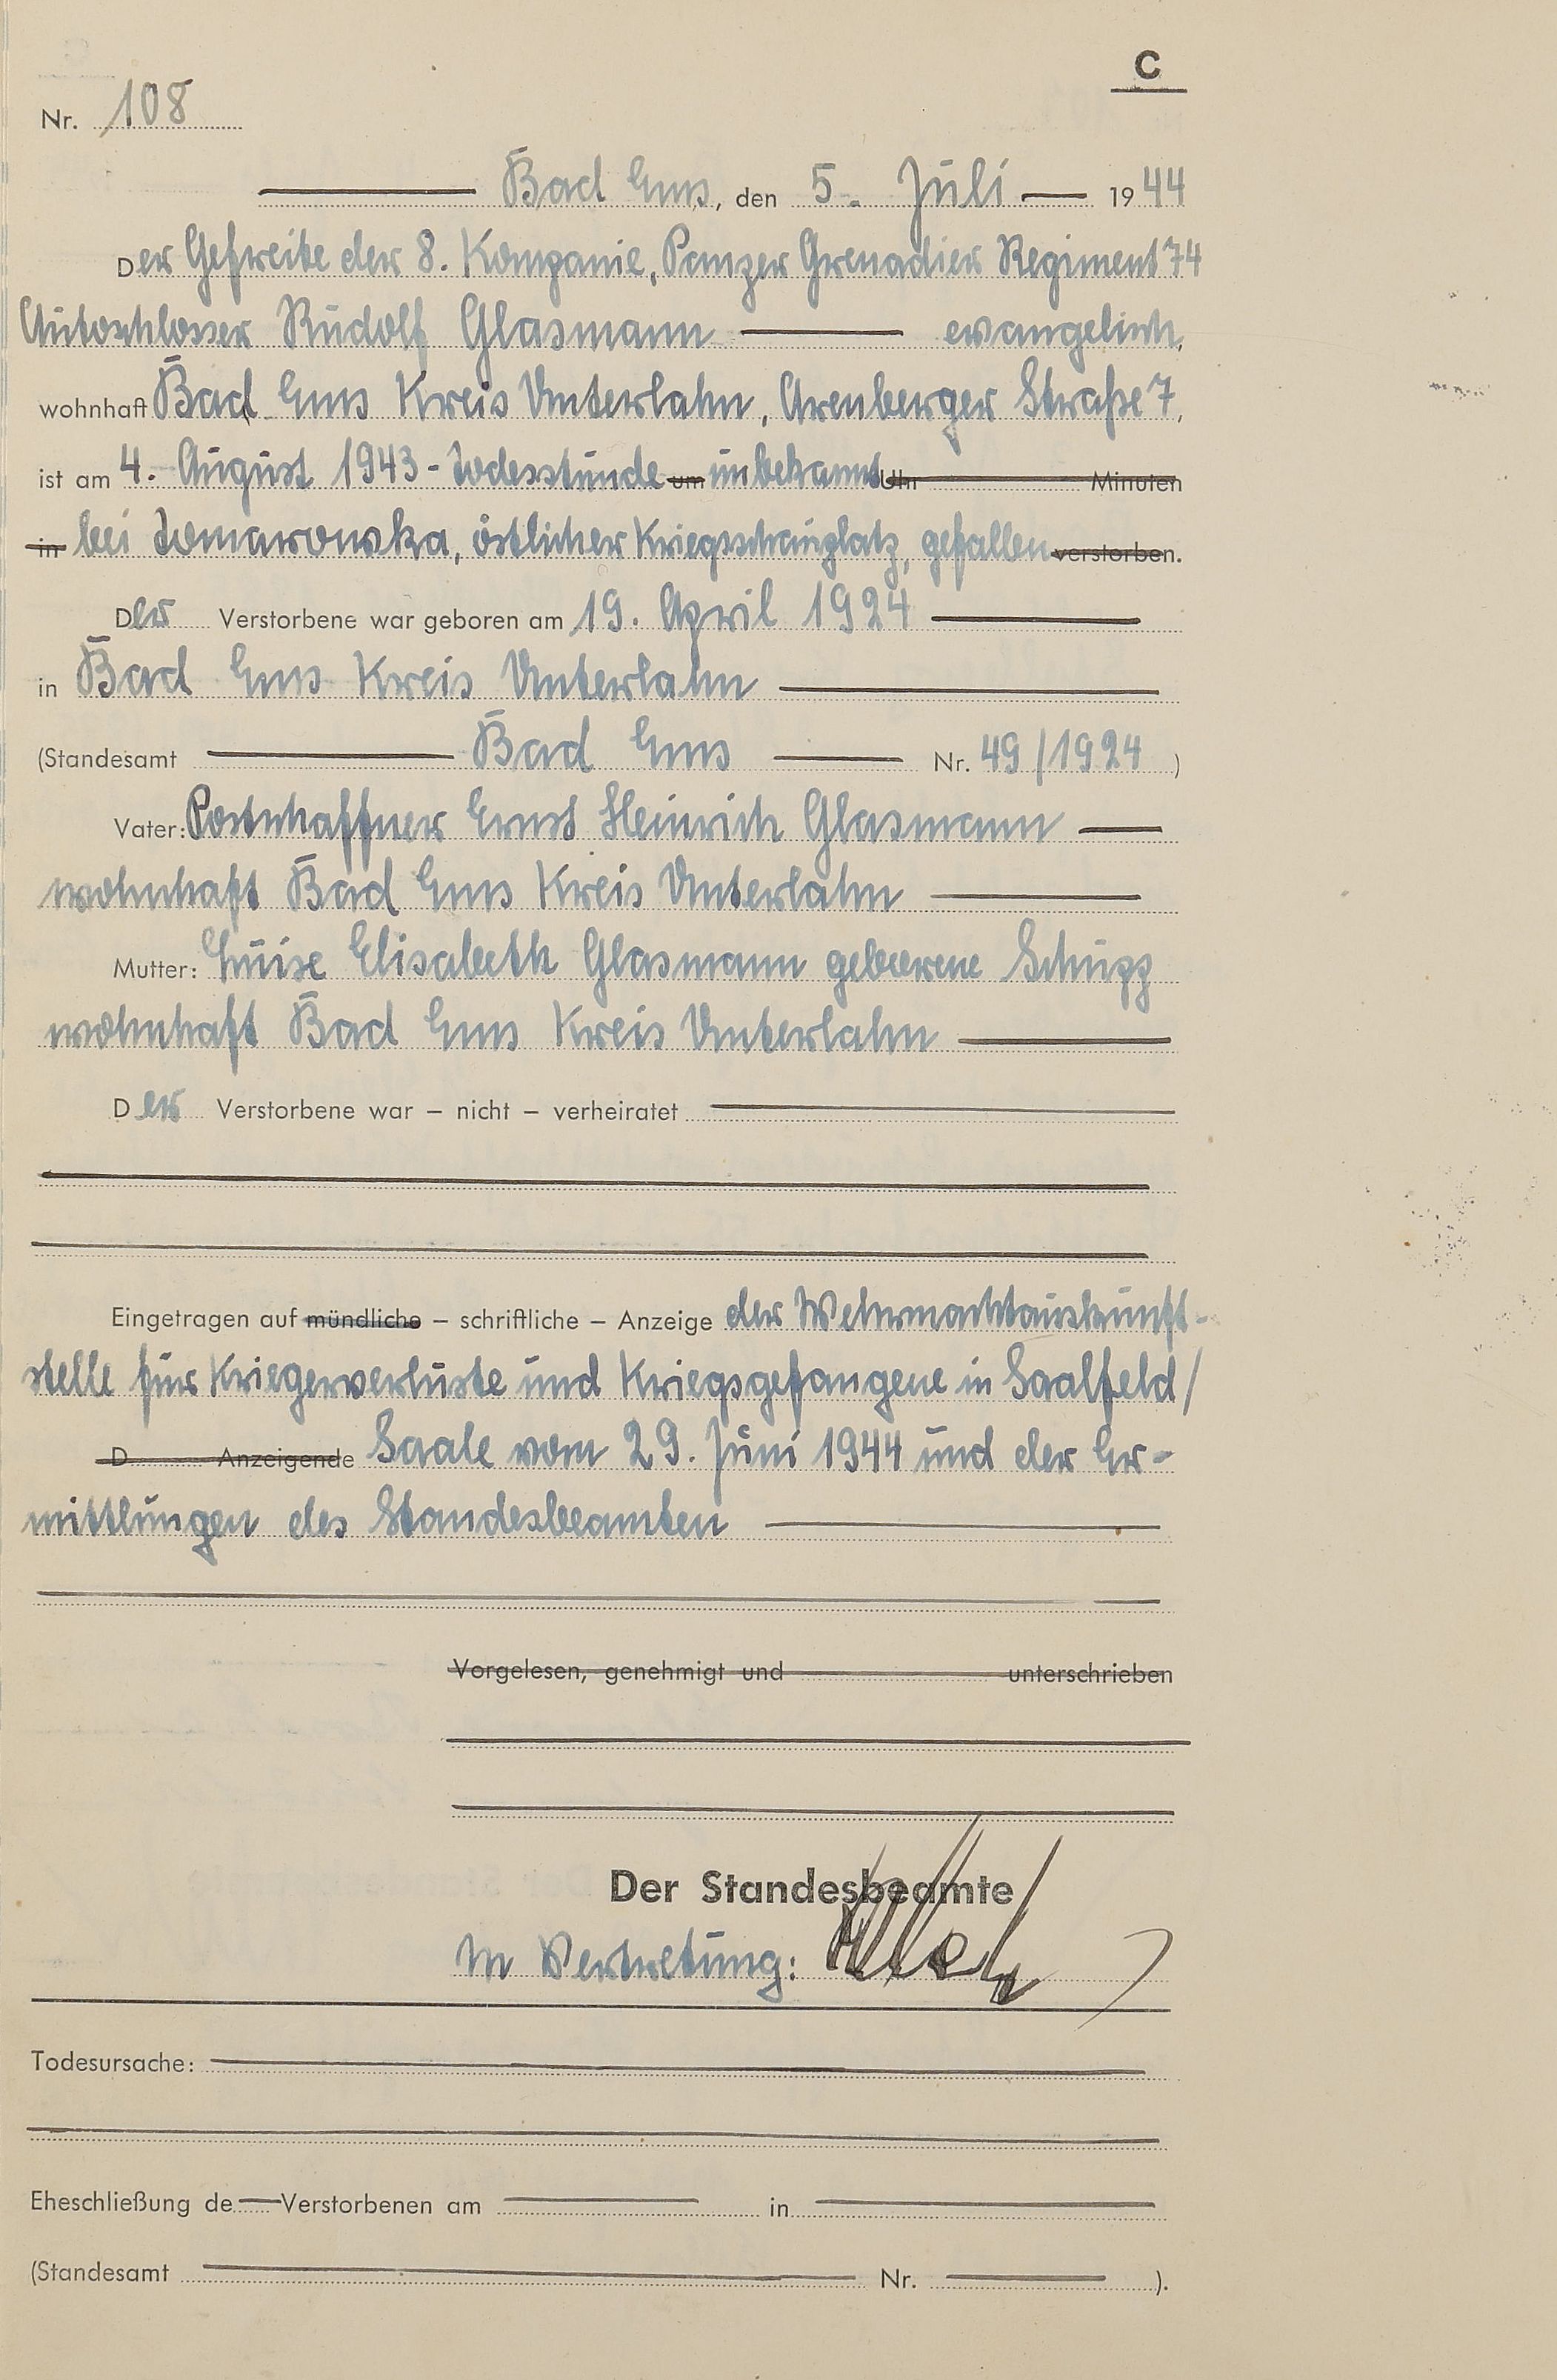 C
Nr. 108
Bad Ems, den 5. Juli 1944
Der Gefreite der 8. Kompanie, Panzer Grenadier Regiment 74
Autoschlosser Rudolf Glasmann evangelisch,
wohnhaft Bad Ems Kreis Unterlahn, Arenberger Straße 7,
ist am 4. August 1943 - Todesstunde um unbekannt Uhr Minuten
in bei Tomarowka, östlicher Kriegsschauplatz, gefallen verstorben.
Der Verstorbene war geboren am 19. April 1924
in Bad Ems Kreis Unterlahn
(Standesamt Bad Ems Nr. 49/1924 )
Vater: Postschaffner Ernst Heinrich Glasmann
wohnhaft Bad Ems Kreis Unterlahn
Mutter: Luise Elisabeth Glasmann geborene Schupp
wohnhaft Bad Ems Kreis Unterlahn
Der Verstorbene war – nicht – verheiratet
Eingetragen auf mündliche – schriftliche – Anzeige der Wehrmachtauskunft-
stelle für Kriegerverluste und Kriegsgefangene in Saalfeld/
D Anzeigende Saale vom 29. Juni 1944 und der Er-
mittlungen des Standesbeamten
Vorgelesen, genehmigt und unterschrieben
Der Standesbeamte
In Vertretung:
Todesursache:
Eheschließung de Verstorbenen am in
(Standesamt Nr. ).